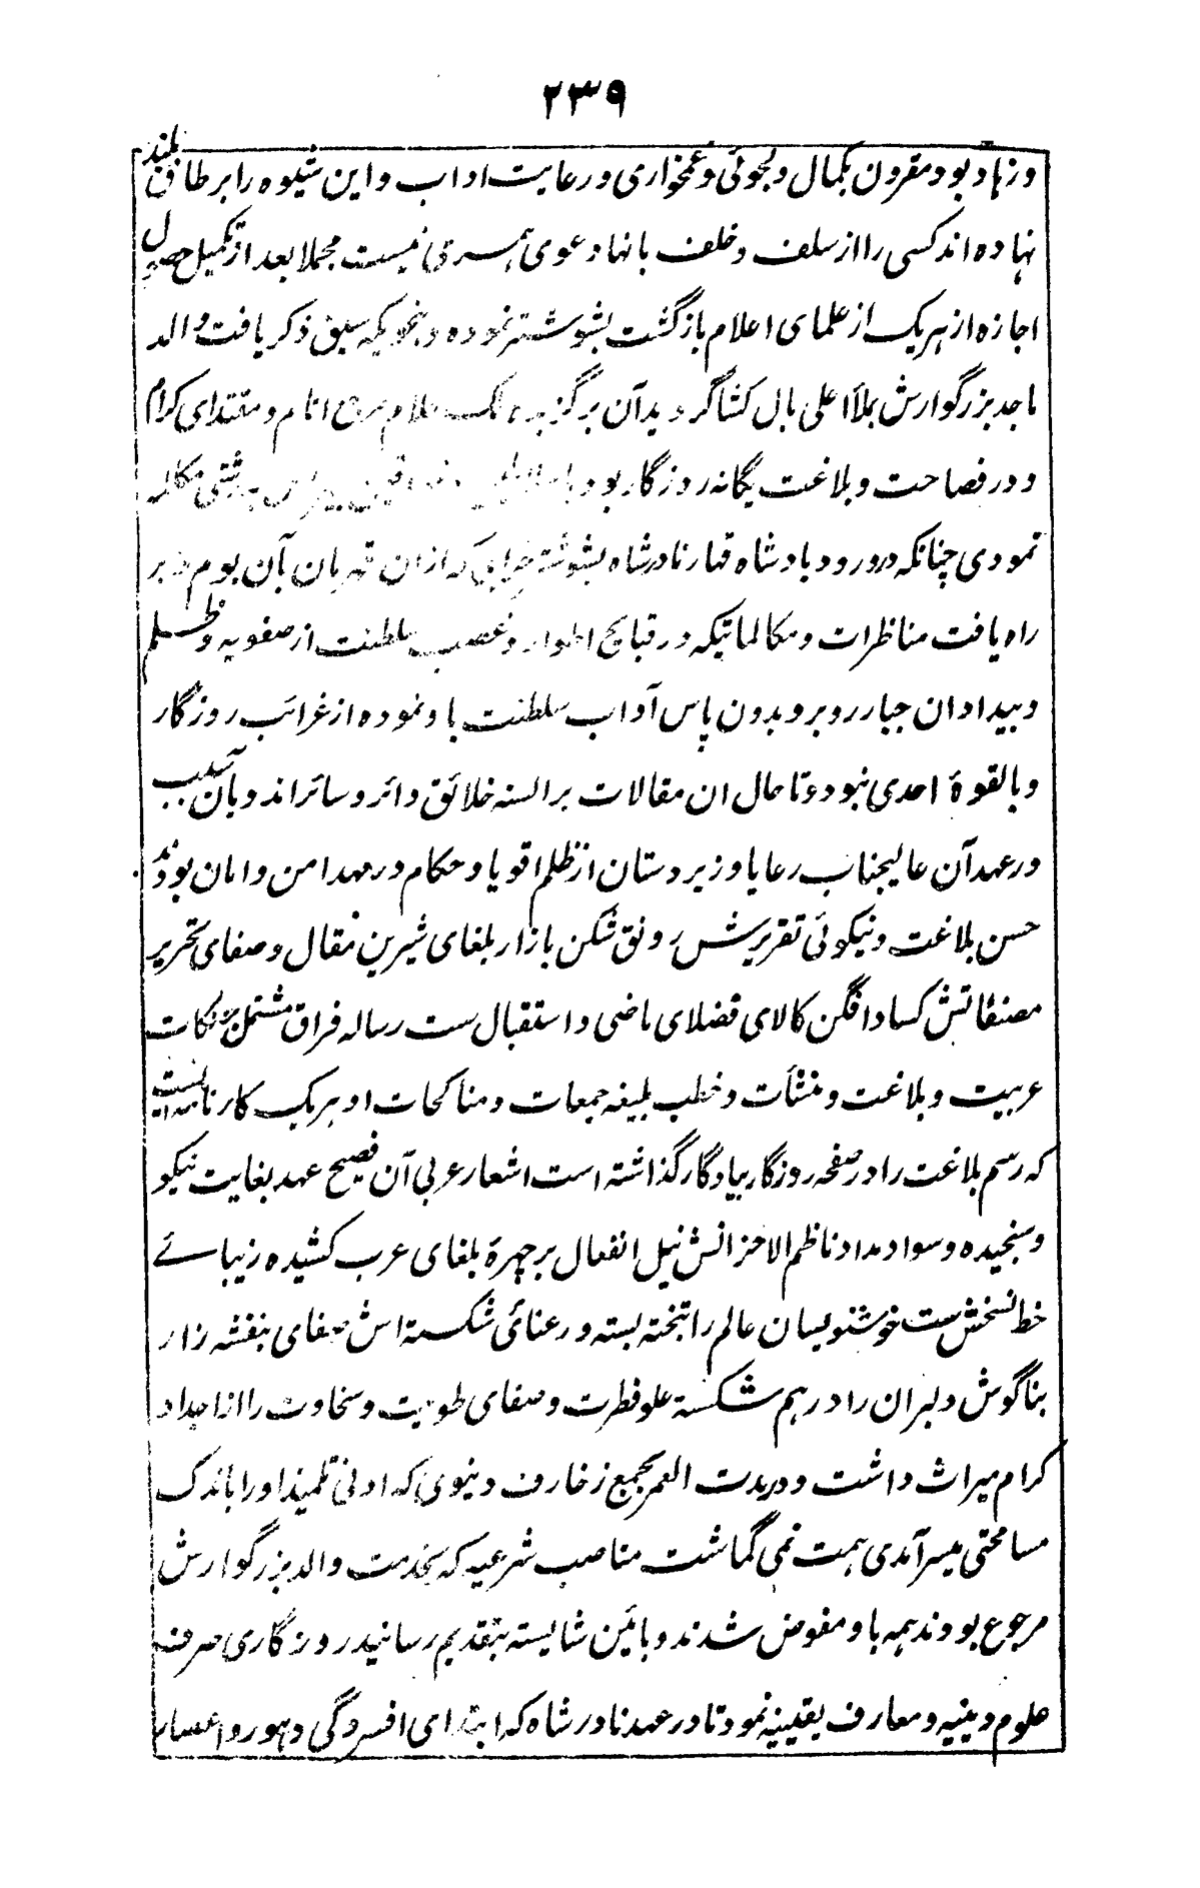 ۲۳۹
و زهاد بود مقرون بکمال دلجوئی و غمخواری و رعایت اداب و این شیوه را بر طاق بلند
نهاده اند کسی را از سلف و خلف بانها دعوی همسری نیست مجملا بعد از تکمیل حصول
اجازه از هریک از علمای اعلام بازگشت بشوشتر نموده و بنحویکه سبق ذکر یافت والد
ماجد بزرگوارش بملأ اعلی بال کشا گردید آن برگزیده ملک علام مرجع انام و مقتدای کرام
و در فصاحت و بلاغت یگانه روزگار بود با سلاطین بدرشتی مکالمه
نمودی چنانکه در ورود بادشاه قهار نادر شاه بشوشتر که ازان قهرمان بآن بوم و بر
راه یافت مناظرات و مکالماتیکه در قبایح اطوار و غصب سلطنت از صفویه و ظلم
و بیداد ان جبار روبرو بدون پاس آداب سلطنت با و نموده از غرائب روزگار
و بالقوهٔ احدی نبود و تا حال ان مقالات بر السنه خلائق دائر و سائر اند و بآن سبب
در عهد آن عالیجناب رعایا و زیردستان از ظلم اقویا و حکام در مهد امن و امان بودند
حسن بلاغت و نیکوئی تقریرش رونق شکن بازار بلغای شیرین مقال و صفای تحریر
مصنفاتش کساد افگن کالای فضلای ماضی و استقبال ست رساله فراق مشتمل بر نکات
عربیت و بلاغت و منشآت و خطب بلیغه جمعات و مناکحات او هریک کارنامه ایست
که رسم بلاغت را در صفحه روزگار بیادگار گذاشته است اشعار عربی آن فصیح عهد بغایت نیکو
و سنجیده و سواد مداد ناظم الاحزانش نیل انفعال بر چهرهٔ بلغای عرب کشیده زیبائے
خط نسخش دست خوشنویسان عالم را بتخته بسته و رعنائی شکسته اش صفای بنفشه زار
بناگوش دلبران را درهم شکسته علو فطرت و صفای طویت و سخاوت را از اجداد
کرام میراث داشت و در مدت العمر بجمع زخارف دنیوی که ادنی تلمیذ او را باندک
مسامحتی میسر آمدی همت نمی گماشت مناصب شرعیه که بخدمت والد بزرگوارش
مرجوع بودند همه با و مفوض شدند و بائین شایسته بتقدیم رسانید روزگاری صرف
علوم دینیه و معارف یقینیه نمود تا در عهد نادر شاه که ابتدای افسردگی دهور و اعصار